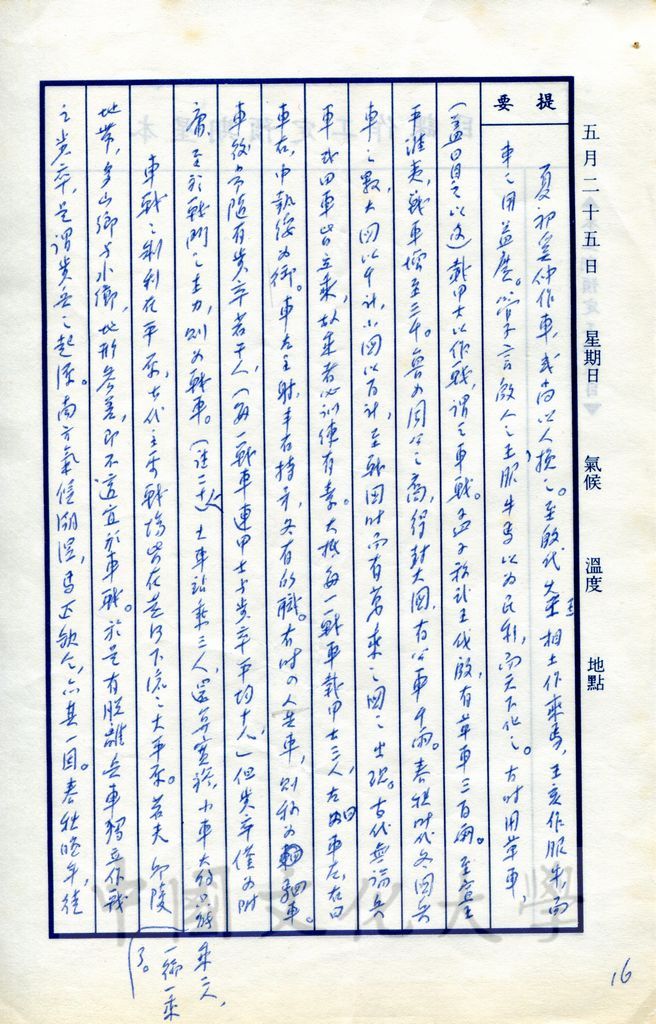 五月二十五日 星期日 氣候 溫度 地點
提要
夏初奚仲作車,或尚以人挽之。至殷代大王相土作乘馬,王亥作服牛,而
車之用益廣。管子言殷人之王服牛馬以為民利,而天下化之。古時用革車,
(蓋冒之以)載甲士以作戰,謂之車戰。孟子稱武王伐殷,有革車三百兩。至宣王
平淮夷,戰車增至三千。魯為周公之裔,得封大國,有公車千兩。春秋時代各國兵
車之數,大國以千計,小國以百計,至戰國時而有萬乘之國之出現。古代無論兵
車或田車皆立乘,故乘者必訓練有素。大抵每一戰車載甲士三人,左曰車左,右曰
車右,中執綏為御。車左主射,車右持矛,各有所職。有時四人共車,則稱為駟車。
車後常隨有步卒若干人,(每一戰車連甲士與步卒平均十人)但步卒僅為附
庸,至於戰鬥之主力,則為戰車。(注二十)大車站乘三人,還算寬裕,小車大約只能乘二人,
一御一乘
了。)
車戰之制利在平原,古代主要戰場皆在黃河下流之大平原。若夫邱陵
地帶,多山鄉與水鄉,地形參差,即不適宜於車戰。於是有脫離兵車獨立作戰
之步卒,是謂步兵之起源。南方氣候潮溼,馬匹缺乏,亦其一因。春秋晚年,徒
16
中國文化大學